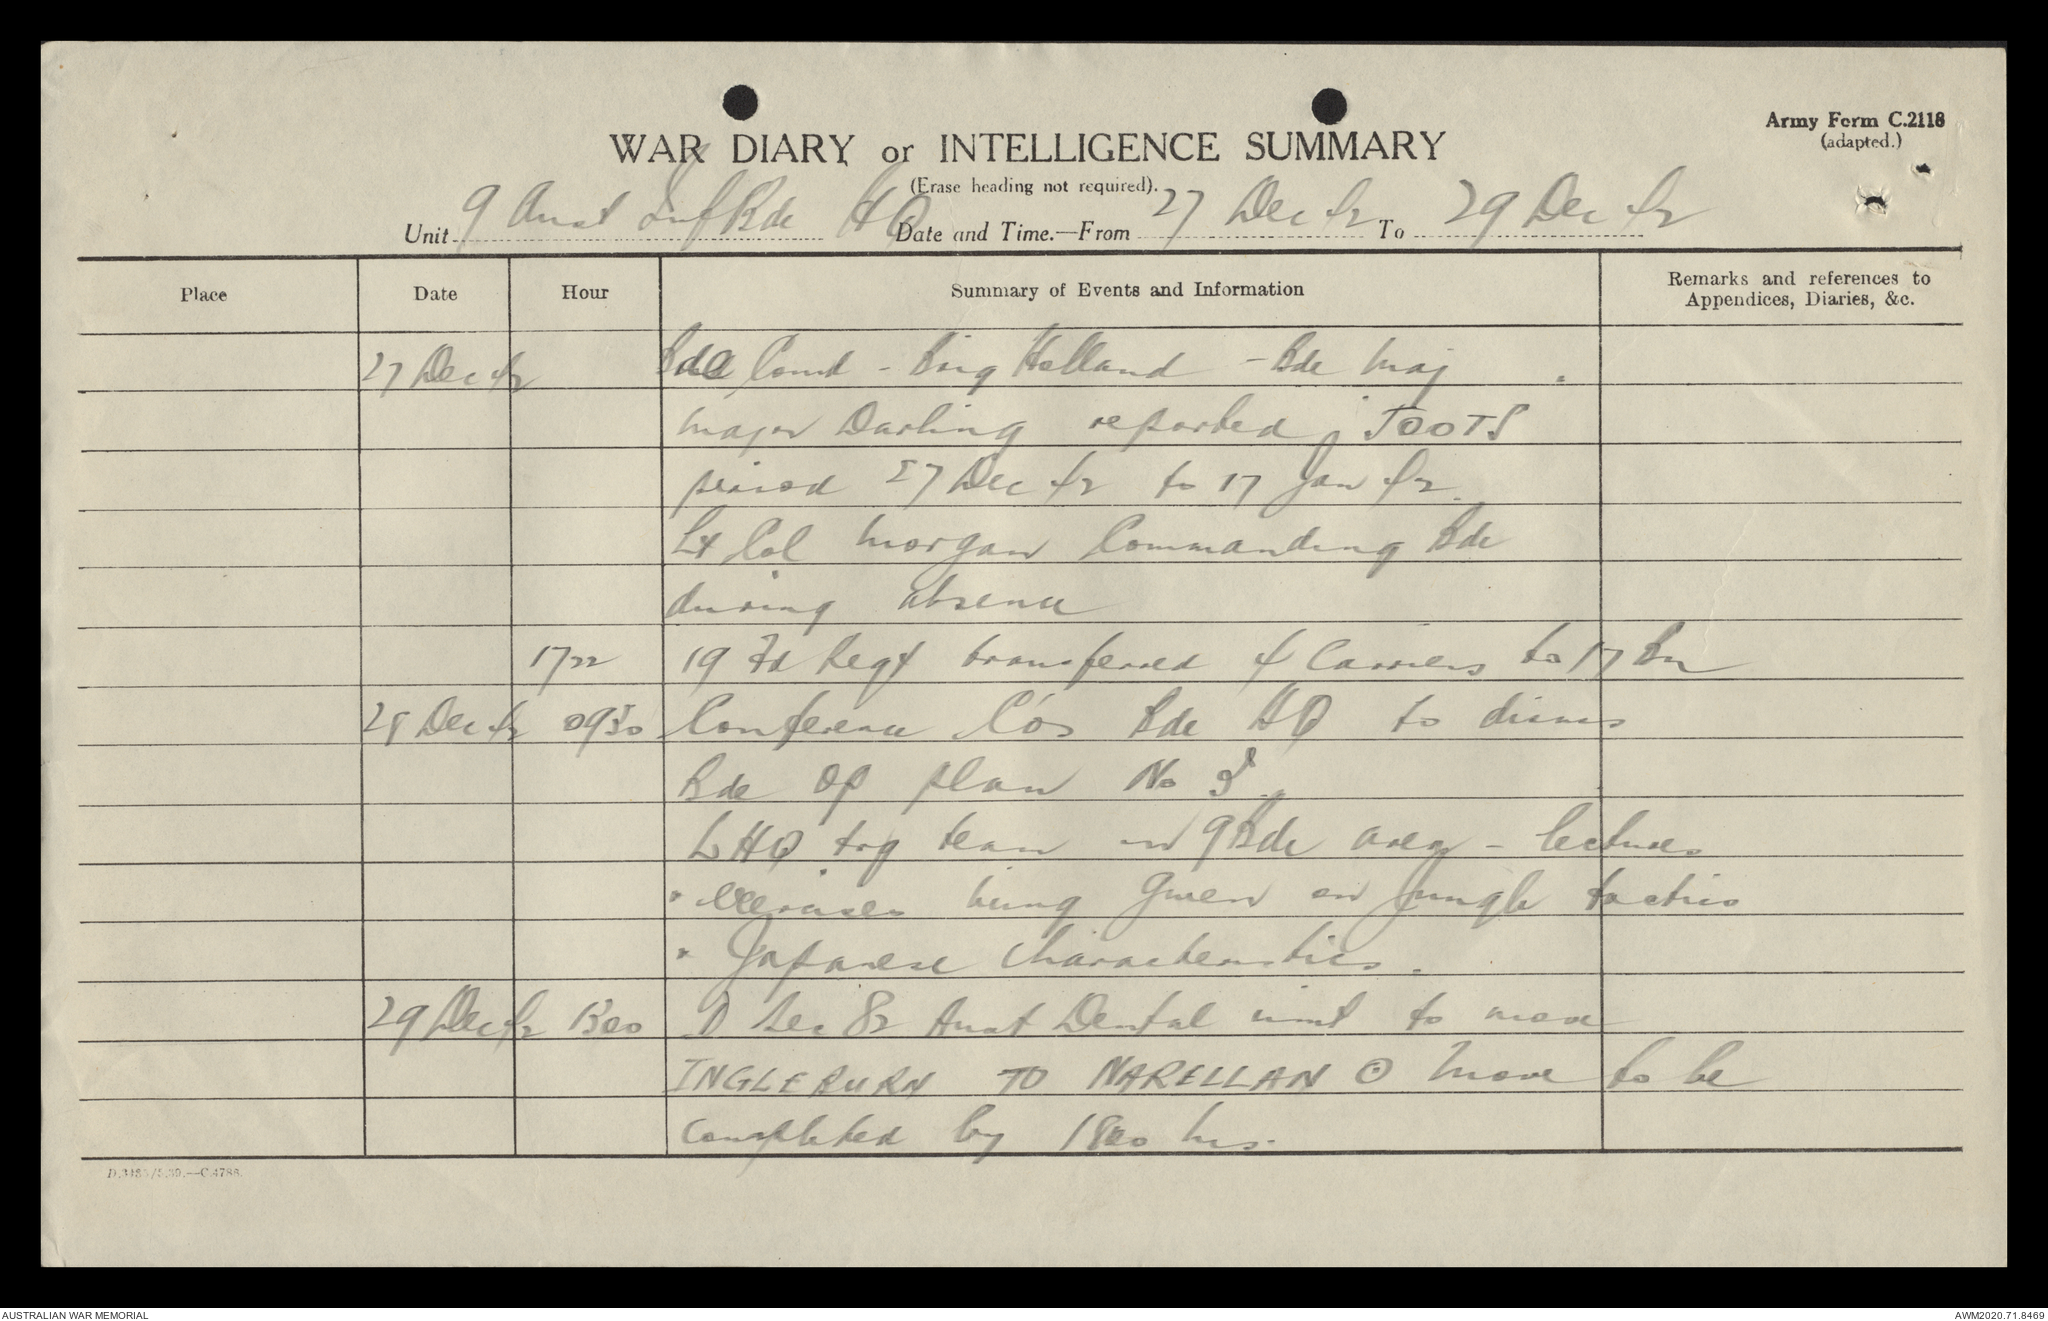 Army Form C.2118
(adapted.)
WAR DIARY or INTELLIGENCE SUMMARY
(Erase heading not required).
Unit 9 Aust Inf Bde HQ Date and Time.—From 27 Dec 42 To 29 Dec 42
Place Date Hour Summary of Events and Information Remarks and references to Appendices, Diaries, &c.
27 Dec 42 Bde Comd - Brig Holland - Bde Maj
Major Darling reported, JOOTS
period 27 Dec 42 to 17 Jan 42.
Lt Col Morgan Commanding Bde
during absence
1722 19 Fd Regt transferred 4 Carriers to 17 Bn
28 Dec 42 0930 Conference COs Bde HQ to discuss
Bde OP plan No
LHQ trg team in 9 Bde area - lectures
" exercises being given on jungle tactics
" Japanese characteristics.
29 Dec 42 1300 D Sec 82 Aust Dental unit to move
INGLEBURN TO NARELLAN ⊙ Move to be
completed by 1800 hrs.
D.3483/5.39.—C.4786.
AUSTRALIAN WAR MEMORIAL
AWM2020.71.8469